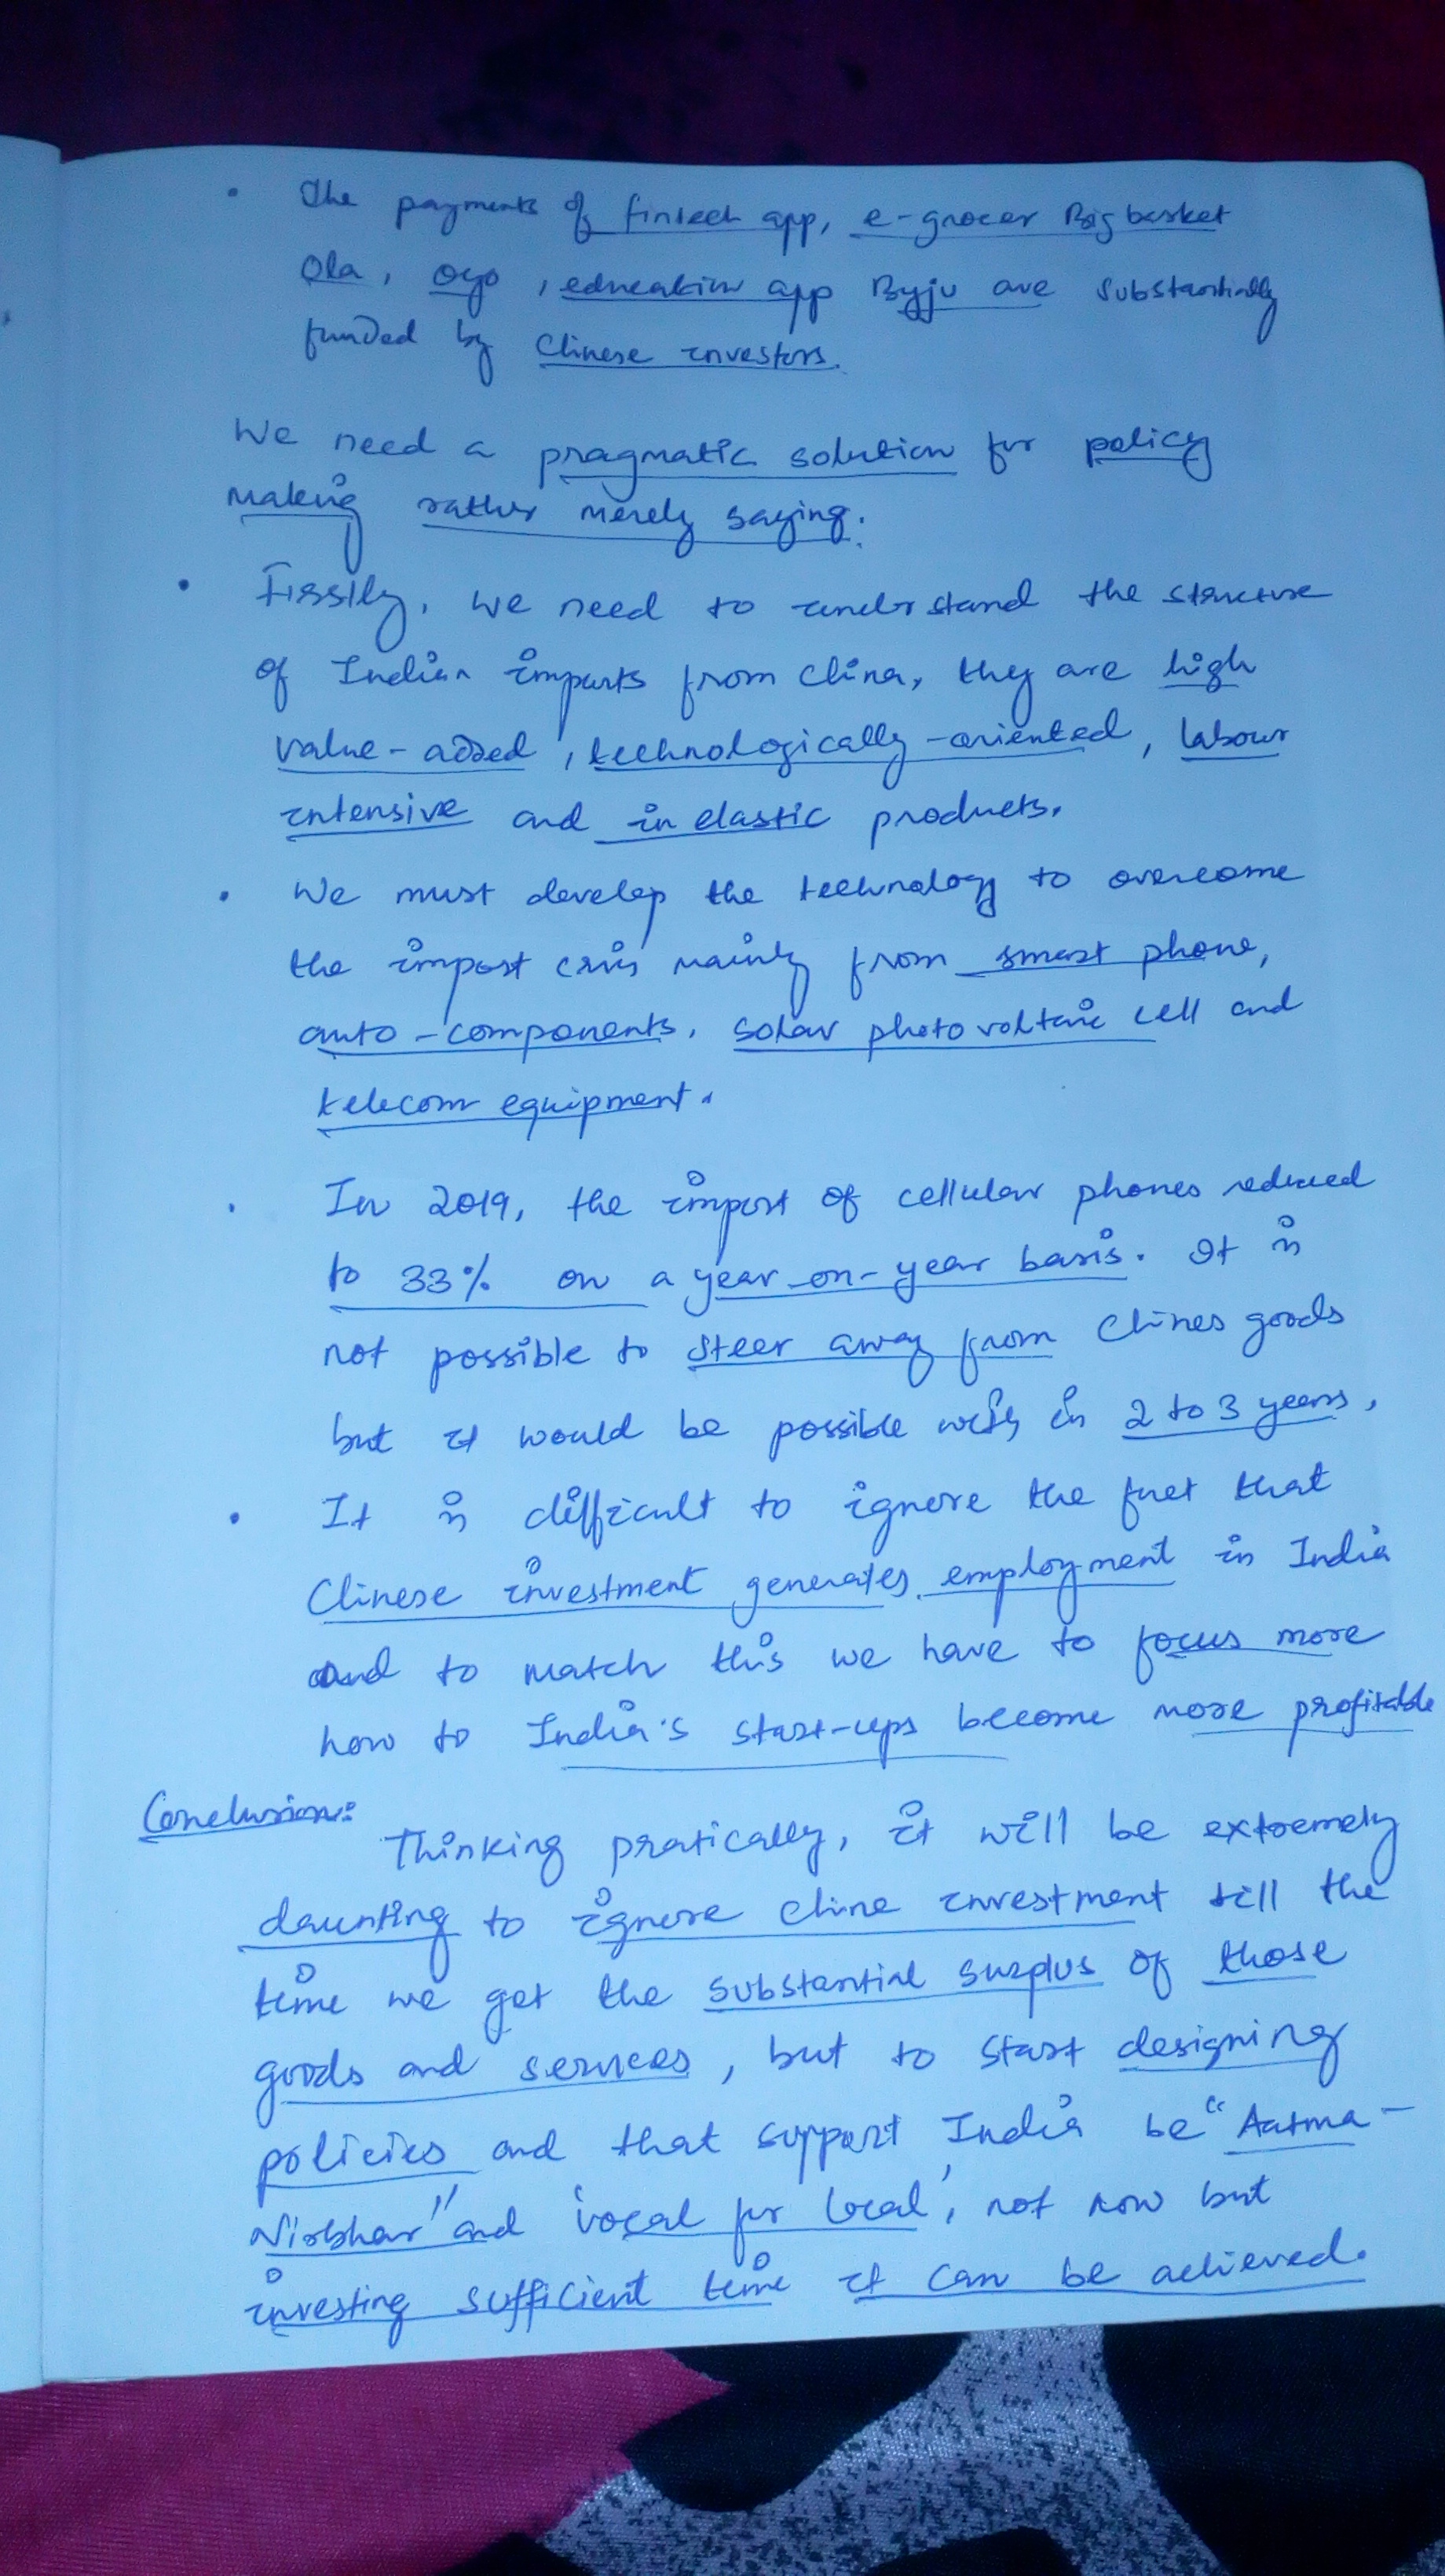 • The payments of fintech app, e-grocer Bigbasket
Ola, oyo, education app Byju are substantially
funded by Chinese investors.
We need a pragmatic solution for policy
making rather merely saying.
• Firstly, we need to understand the structure
of Indian imports from China, they are high
value-added, technologically-oriented, labour
intensive and in elastic products.
• We must develop the technology to overcome
the import crisis mainly from smart phone,
auto-components, solar photo voltaic cell and
telecom equipment.
• In 2019, the import of cellular phones reduced
to 33% on a year-on-year basis. It is
not possible to steer away from Chines goods
but it would be possible in 2 to 3 years,
• It is difficult to ignore the fact that
Chinese investment generates employment in India
and to match this we have to focus more
how to India's start-ups become more profitable
Conclusion:
Thinking pratically, it will be extremely
daunting to ignore Chine investment till the
time we get the substantial surplus of those
goods and services, but to start designing
policies and that support India be "Aatma-
Nirbhar" and 'vocal for local', not now but
investing sufficient time it can be achieved.